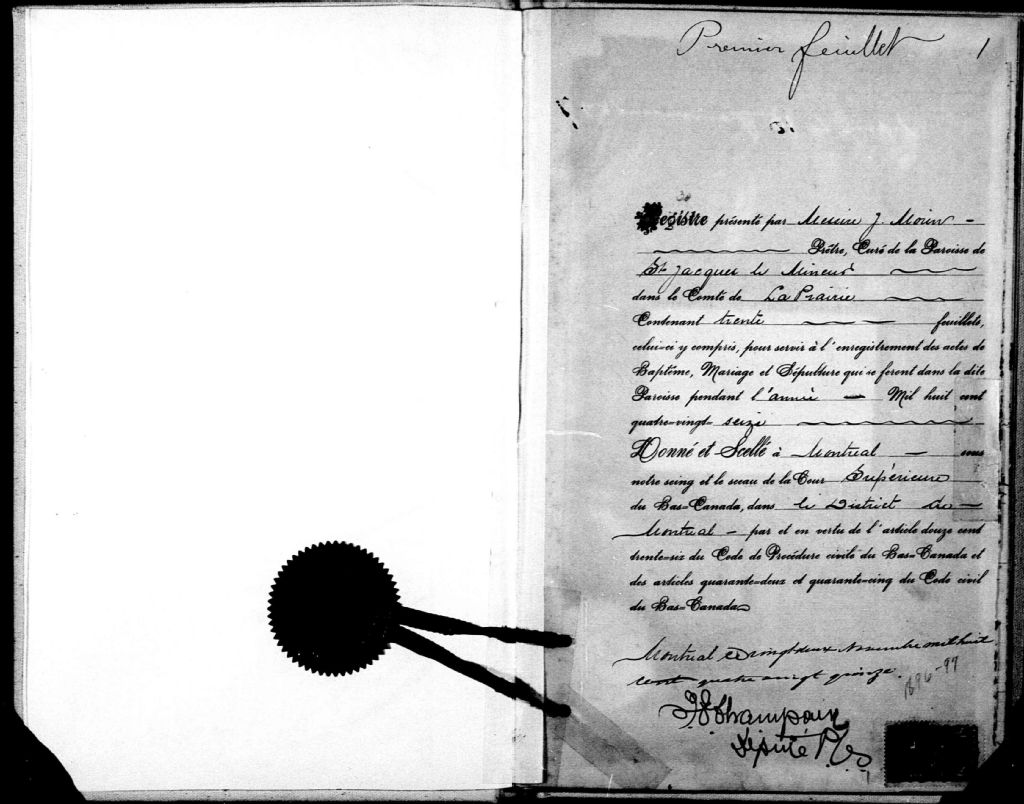 Premier feuillet 1
30
Registre présenté par Messire J. Morin
Prêtre, Curé de la Paroisse de
St Jacques le Mineur
dans le Comté de LaPrairie
Contenant trente feuillets,
celui-ci y compris, pour servir à l'enregistrement des actes de
Baptême, Mariage et Sépulture qui se feront dans la dite
Paroisse pendant l'année Mil huit cent
quatre-vingt- seize
Donné et Scellé à Montreal sous
notre seing et le sceau de la Cour Supérieure
du Bas-Canada, dans le District de
Montreal par et en vertu de l'article douze cent
trente-six du Code de Procédure civile du Bas-Canada et
des articles quarante-deux et quarante-cinq du Code civil
du Bas-Canada
Montreal ce vingt deux Novembre mil huit
cent quatre vingt quinze.
1896-97
Champoux
Député P.